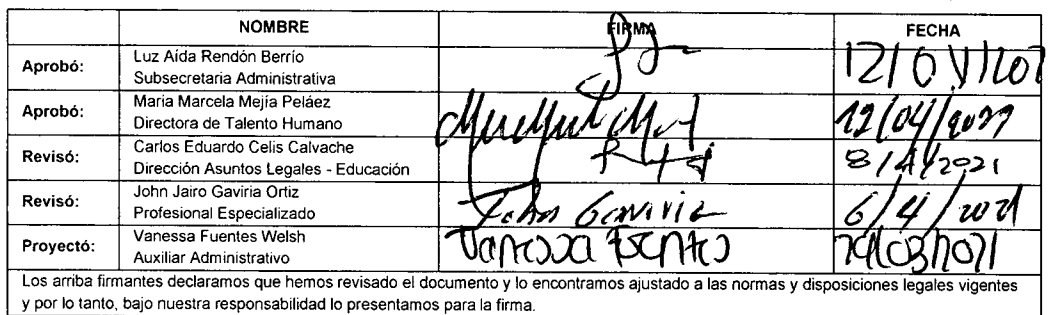 NOMBRE FIRMA FECHA
Aprobó: Luz Aída Rendón Berrío
Subsecretaria Administrativa
Aprobó: Maria Marcela Mejía Peláez 12/04/
Directora de Talento Humano
Revisó: Carlos Eduardo Celis Calvache 8/4/2021
Dirección Asuntos Legales - Educación
Revisó: John Jairo Gaviria Ortiz John Gaviria 6/4/2021
Profesional Especializado
Proyectó: Vanessa Fuentes Welsh Vanessa Fuentes /03/2021
Auxiliar Administrativo
Los arriba firmantes declaramos que hemos revisado el documento y lo encontramos ajustado a las normas y disposiciones legales vigentes
y por lo tanto, bajo nuestra responsabilidad lo presentamos para la firma.